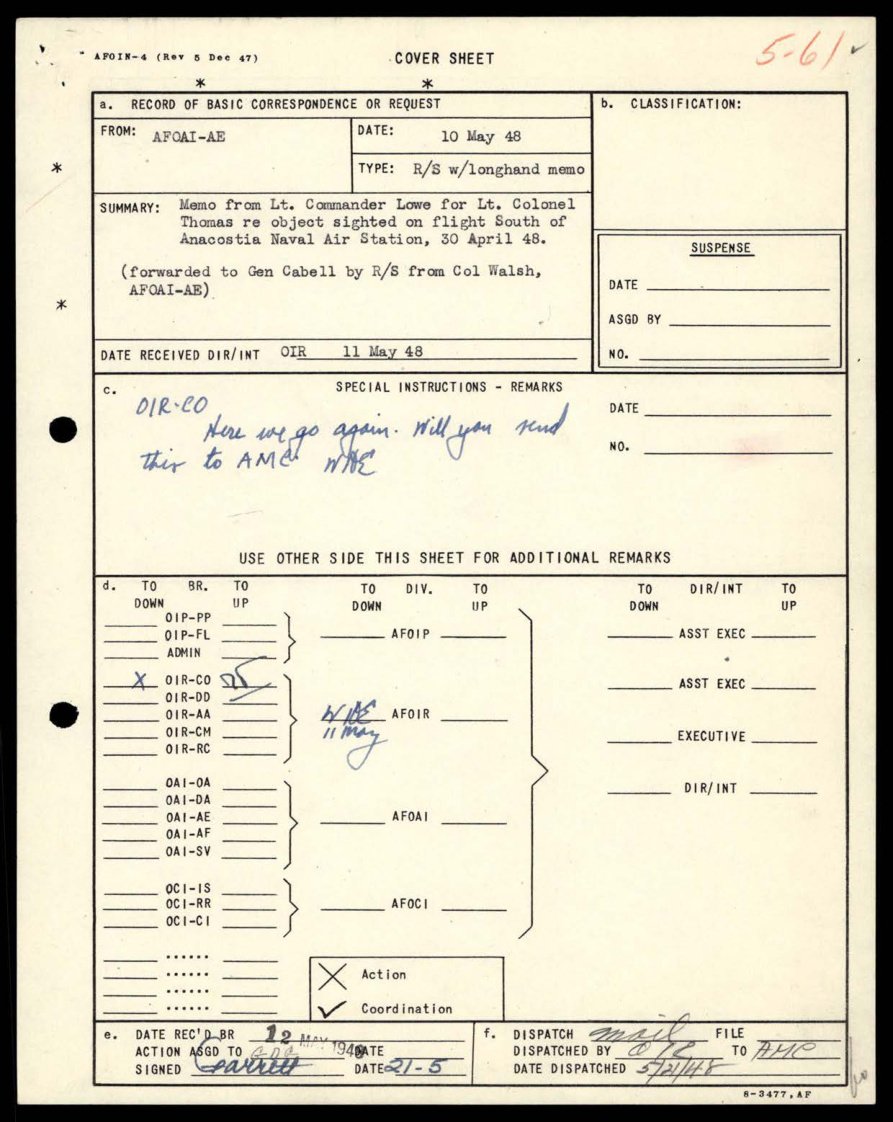 AFOIN-4 (Rev 5 Dec 47)
COVER SHEET
5-61
* *
a. RECORD OF BASIC CORRESPONDENCE OR REQUEST
b. CLASSIFICATION:
FROM: AFOAI-AE
DATE: 10 May 48
*
TYPE: R/S w/longhand memo
SUMMARY: Memo from Lt. Commander Lowe for Lt. Colonel
Thomas re object sighted on flight South of
Anacostia Naval Air Station, 30 April 48.
(forwarded to Gen Cabell by R/S from Col Walsh,
AFOAI-AE)
*
SUSPENSE
DATE
ASGD BY
NO.
DATE RECEIVED DIR/INT OIR 11 May 48
c. SPECIAL INSTRUCTIONS - REMARKS
DATE
NO.
OIR-CO
Here we go again. Will you send
this to AMC
USE OTHER SIDE THIS SHEET FOR ADDITIONAL REMARKS
d. TO BR. TO TO DIV. TO TO DIR/INT TO
DOWN UP DOWN UP DOWN UP
OIP-PP
OIP-FL AFOIP ASST EXEC
ADMIN
X OIR-CO ASST EXEC
OIR-DD
OIR-AA AFOIR
OIR-CM 11 May EXECUTIVE
OIR-RC
OAI-OA DIR/INT
OAI-DA
OAI-AE AFOAI
OAI-AF
OAI-SV
OCI-IS
OCI-RR AFOCI
OCI-CI
......
......
......
......
Action
Coordination
e. DATE REC'D BR 12 MAY 1948
ACTION ASGD TO DATE
SIGNED Garrett DATE 21-5
f. DISPATCH mail FILE
DISPATCHED BY TO AMC
DATE DISPATCHED 5/21/48
8-3477,AF